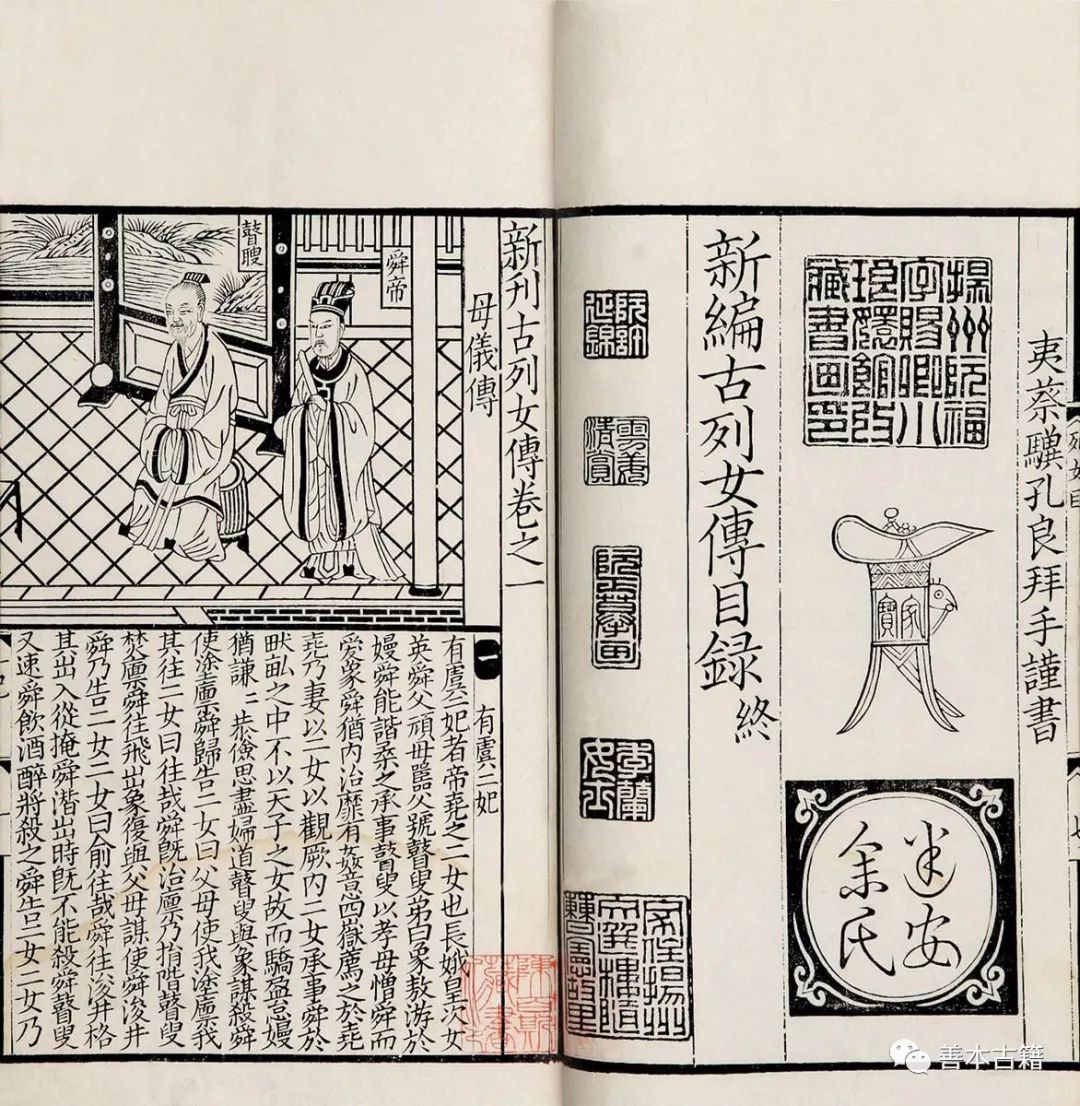 夷蔡驥孔良拜手謹書
揚州阮福
字賜卿小
琅嬛館攷
藏書画印
家寶
建安
余氏
新編古列女傳目録終
阮許
延錦
雲姜
清賞
季蘭
女士
家住揚州
文選樓隋
曹憲故里
新刊古列女傳卷之一
母儀傳
舜帝
瞽瞍
一
有虞二妃
有虞二妃者帝堯之二女也長娥皇次女
英舜父頑母嚚父號瞽叟弟曰象敖游於
嫚舜能諧柔之承事瞽叟以孝母憎舜而
愛象舜猶內治靡有姦意四嶽薦之於堯
堯乃妻以二女以觀厥內二女承事舜於
畎畝之中不以天子之女故而驕盈怠嫚
猶謙〻恭儉思盡婦道瞽叟與象謀殺舜
使塗廩舜歸告二女曰父母使我塗廩我
其往二女曰往哉舜旣治廩乃捐階瞽叟
焚廩舜往飛出象復與父母謀使舜浚井
舜乃告二女二女曰俞往哉舜往浚井格
其出入從掩舜潛出時旣不能殺舜瞽叟
又速舜飲酒醉將殺之舜告二女二女乃
善本古籍